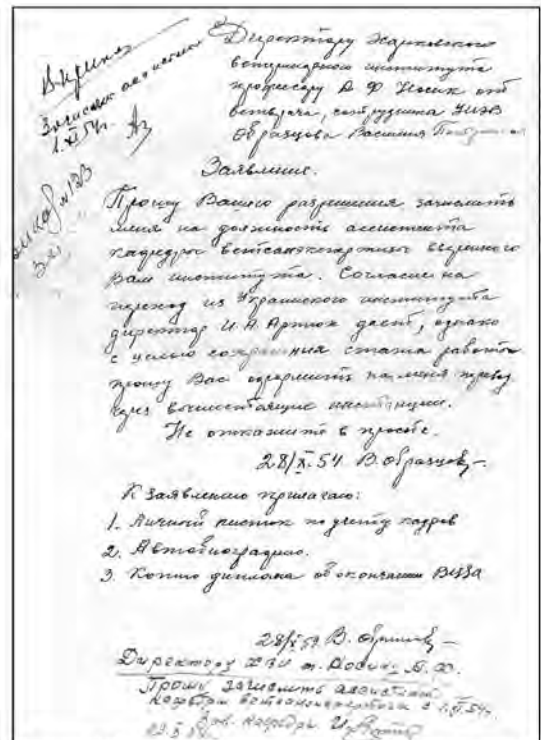 В приказ
Зачислить ассистентом
1.XI.54г.
Директору Харьковского
ветеринарного института
профессору А. Ф. Носик от
ветврача, сотрудника УИЭВ
Образцова Василия
Заявление.
Прошу Вашего разрешения зачислить
меня на должность ассистента
кафедры ветсанэкспертизы вверенного
Вам института. Согласие на
переход из Украинского института
директор И. А. Артюх даст, однако
с целью сохранения стажа работы
прошу Вас оформить на меня перевод
через вышестоящие инстанции.
Не откажите в просьбе.
28/X.54 В. Образцов
К заявлению прилагаю:
1. Личный листок по учету кадров
2. Автобиографию.
3. Копию диплома об окончании
28/X 54 В.
Директору ХВИ т. Носику А. Ф.
Прошу зачислить ассистентом
кафедры ветсанэкспертизы с 1.XI.54г.
Зав. кафедры